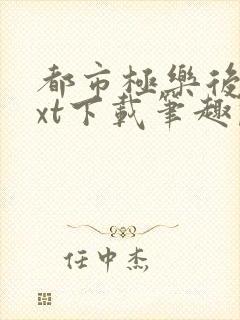 都市極樂後
xt下載筆趣
任中杰